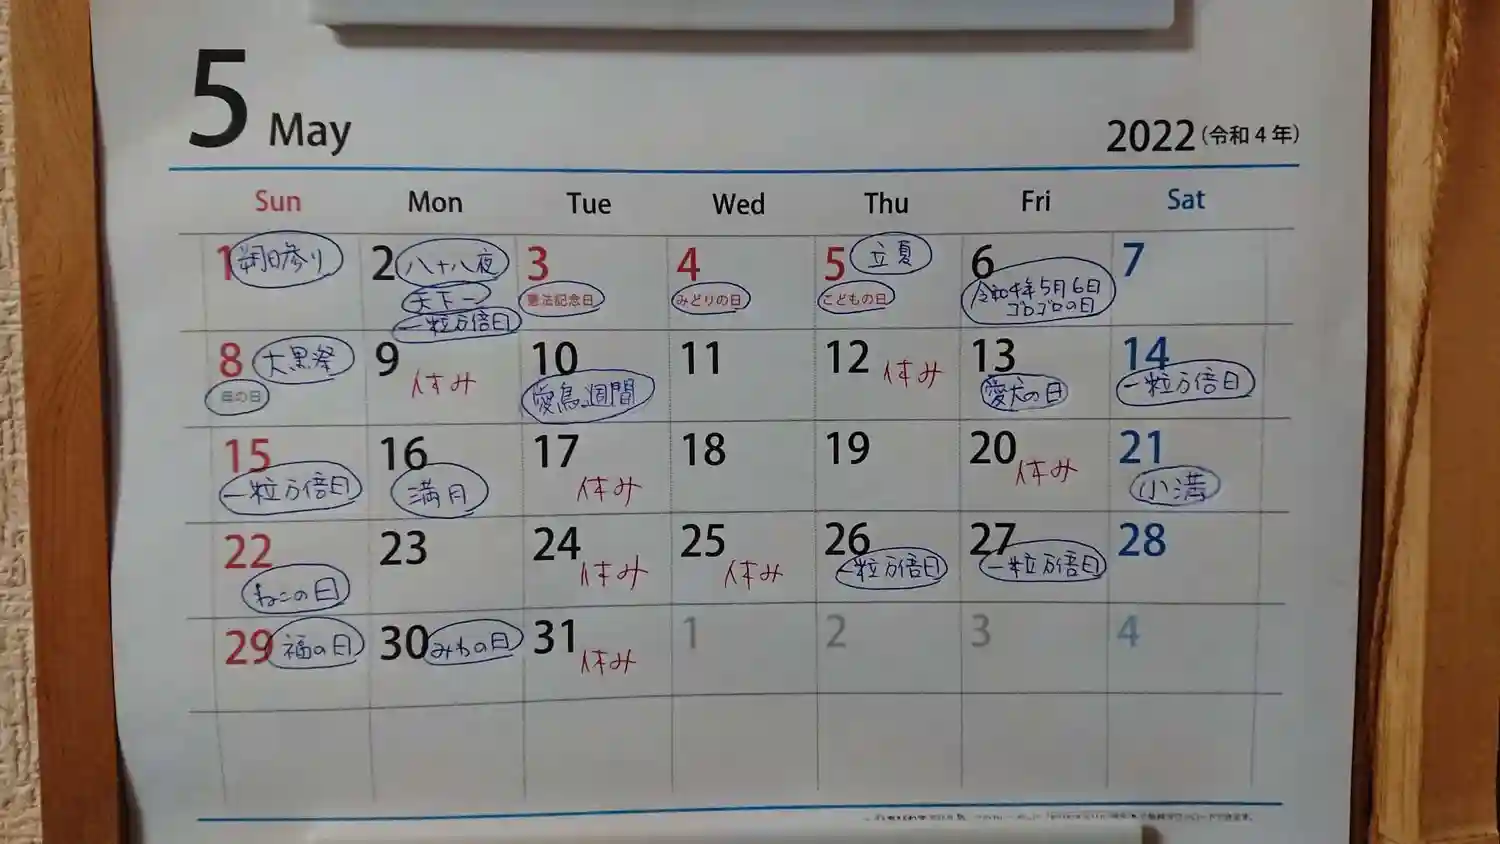 5 May
2022(令和4年)
Sun Mon Tue Wed Thu Fri Sat
1 朔日参り
2 八十八夜
天下一
一粒万倍日
3
憲法記念日
4
みどりの日
5 立夏
こどもの日
6
令和4年5月6日
ゴロゴロの日
7
8 大黒祭
母の日
9 休み
10
愛鳥週間
11
12 休み
13
愛犬の日
14
一粒万倍日
15
一粒万倍日
16
満月
17
休み
18
19
20 休み
21
小満
22
ねこの日
23
24
休み
25
休み
26
一粒万倍日
27
一粒万倍日
28
29 福の日
30 みわの日
31
休み
1
2
3
4